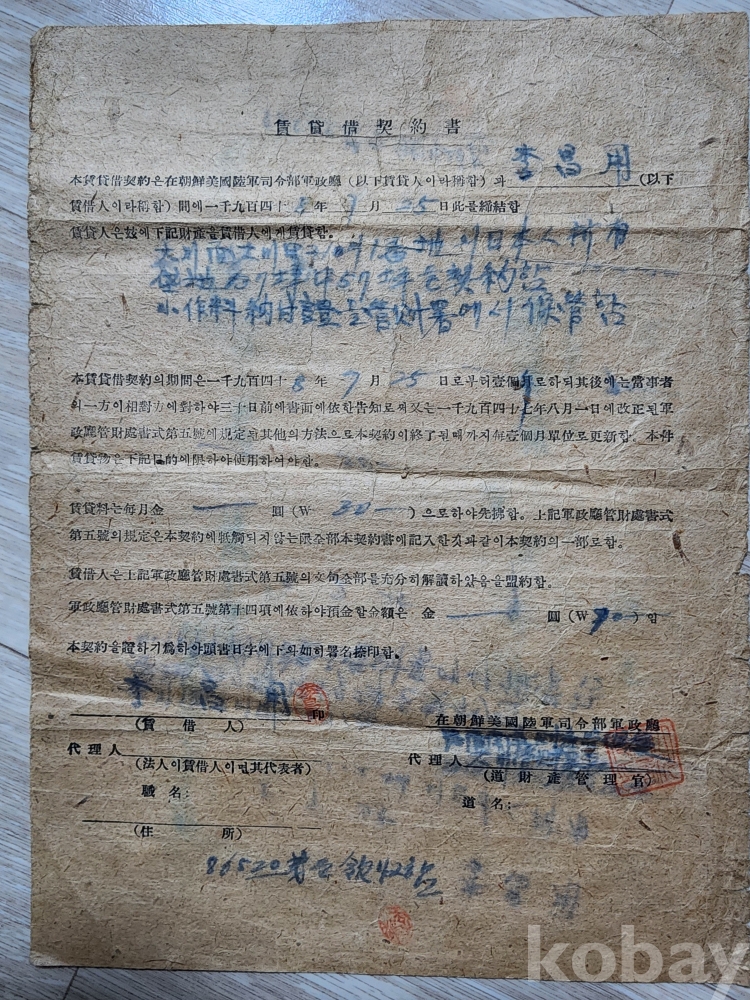 賃貸借契約書
本賃貸借契約은在朝鮮美國陸軍司令部軍政廳（以下賃貸人이라稱함）과 李昌用 （以下
賃借人이라稱함）間에一千九百四十 8 年 9 月 25 日此를締結함
賃貸人은玆에下記財產을賃借人에게賃貸함。
日本人所有
垈地 67坪中57坪을契約함
小作料納付證을管財署에서保管함
本賃貸借契約의期間은一千九百四十 8 年 9 月 25 日로부터壹個月로하되其後에는當事者
의一方이相對方에對하야三十日前에書面에依한告知로써又는一千九百四十七年八月一日에改正된軍
政廳管財處書式第五號에規定된其他의方法으로本契約이終了될때까지每壹個月單位로更新함 本件
賃貸物은下記目的에限하야使用하여야함。
賃貸料는每月金 一 圓（W 30一 ）으로하야先拂함。上記軍政廳管財處書式
第五號의規定은本契約에牴觸되지않는限全部本契約書에記入한것과같이本契約의一部로함。
賃借人은上記軍政廳管財處書式第五號의文句全部를充分히解讀하얐음을盟約함。
軍政廳管財處書式第五號第十四項에依하야預金할金額은 金 一 圓（W 90一）임
本契約을證하기爲하야頭書日字에下와如히署名捺印함。
李昌用 印
（賃借人）
在朝鮮美國陸軍司令部軍政廳
代理人
（法人이賃借人이면其代表者）
代理人
（道財產管理官）
職名：
道名：
（住所）
86520號
kobay